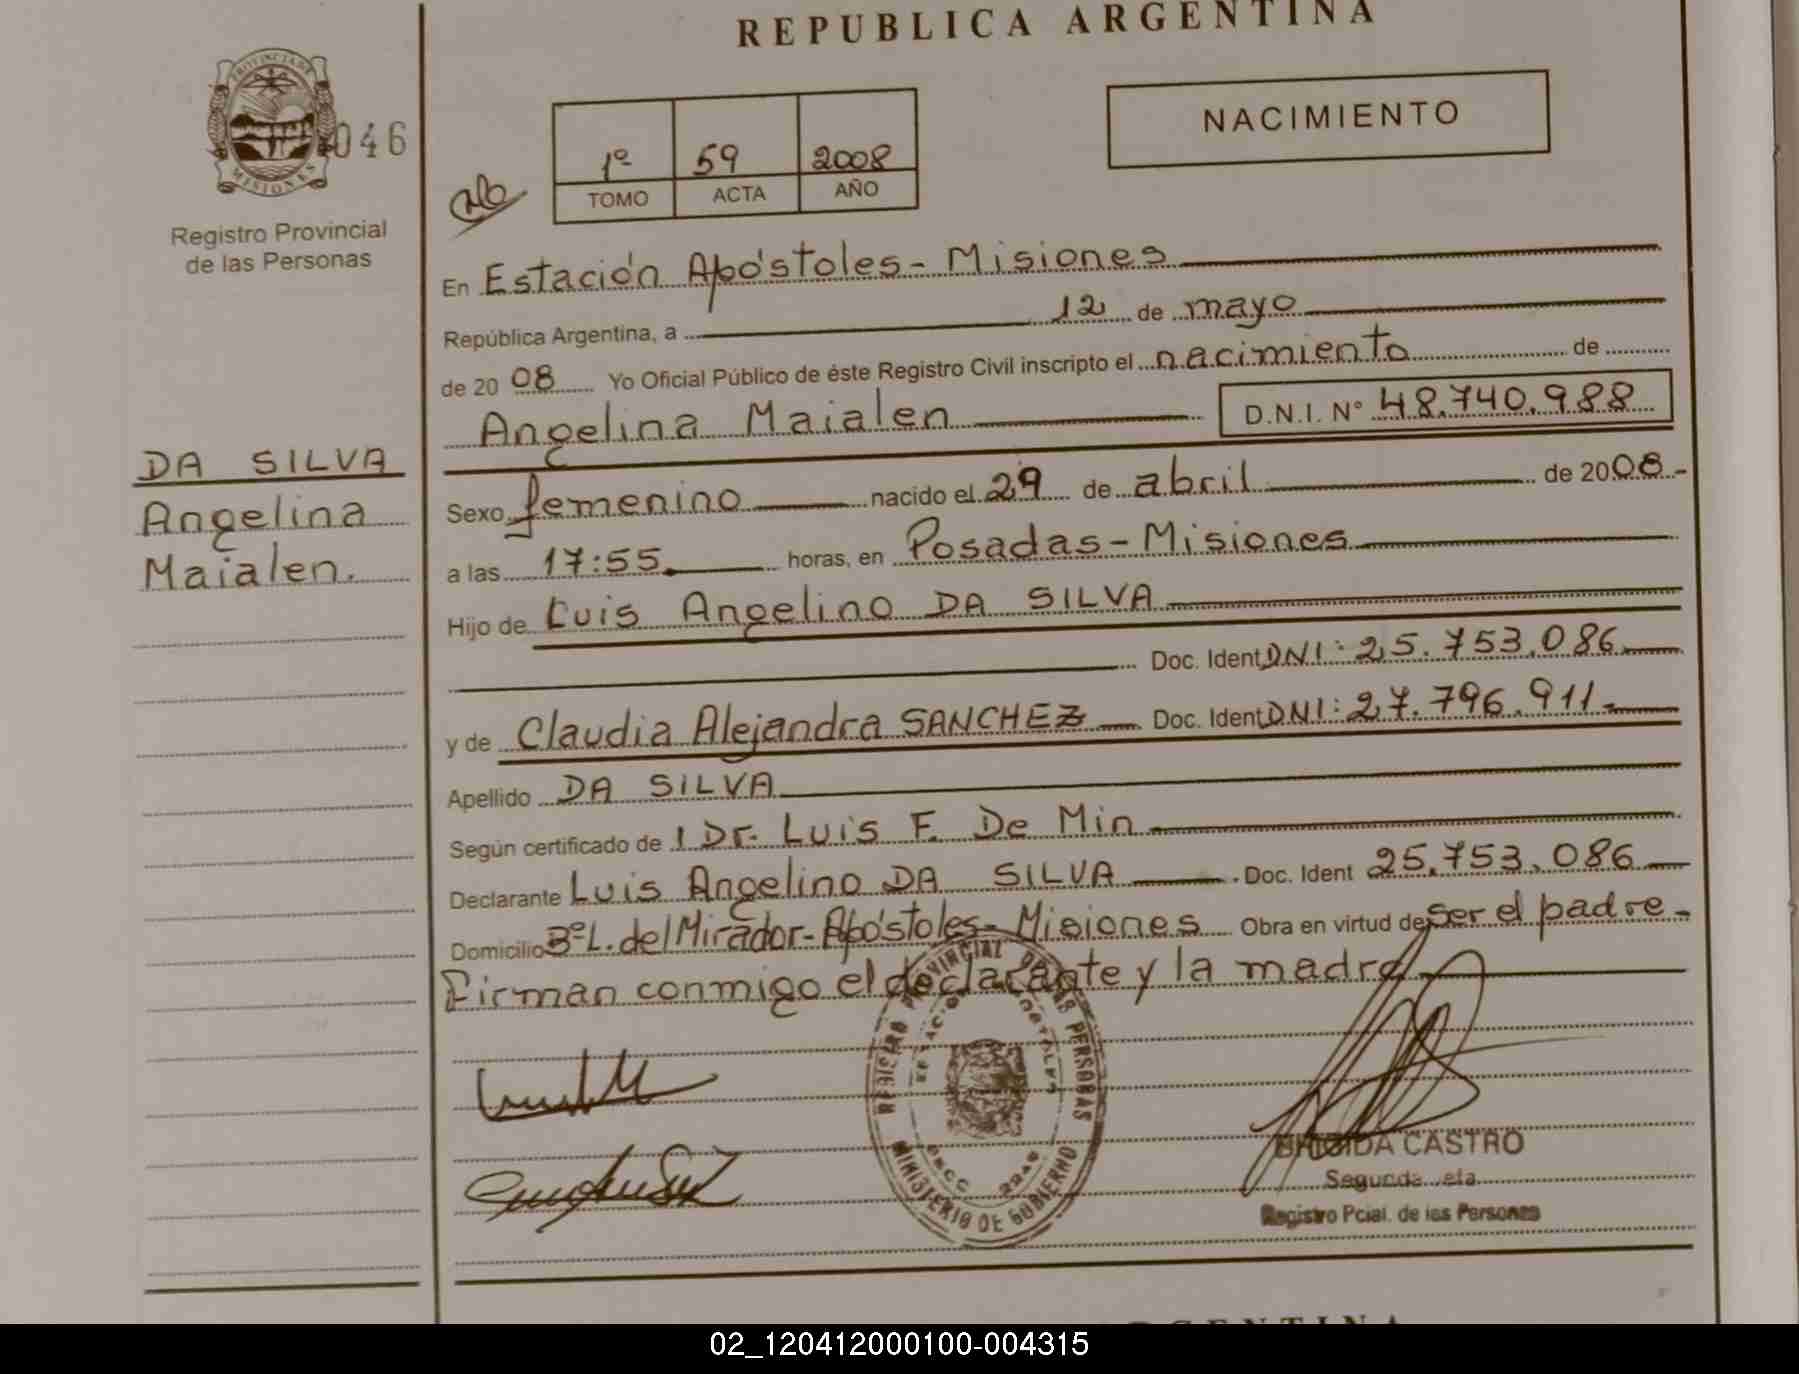 REPUBLICA ARGENTINA
PROVINCIA DE
MISIONES
046
Registro Provincial
de las Personas
1º 59 2008
TOMO ACTA AÑO
NACIMIENTO
En Estación Apóstoles - Misiones
República Argentina, a 12 de mayo
de 2008 Yo Oficial Público de éste Registro Civil inscripto el nacimiento de
Angelina Maialen D.N.I. Nº 48.740.988
DA SILVA
Angelina
Maialen.
Sexo femenino nacido el 29 de abril de 2008.-
a las 17:55 horas, en Posadas - Misiones
Hijo de Luis Angelino DA SILVA
Doc. Ident DNI: 25.753.086
y de Claudia Alejandra SANCHEZ Doc. Ident DNI: 27.796.911.-
Apellido DA SILVA
Según certificado de 1 Dr. Luis F. De Min
Declarante Luis Angelino DA SILVA Doc. Ident 25.753.086
Domicilio Bº L. del Mirador - Apóstoles - Misiones Obra en virtud de ser el padre -
Firman conmigo el declarante y la madre
REGISTRO PROVINCIAL DE LAS PERSONAS
MINISTERIO DE GOBIERNO
BRIGIDA CASTRO
Registro Pcial. de las Personas
ARGENTINA
02_120412000100-004315